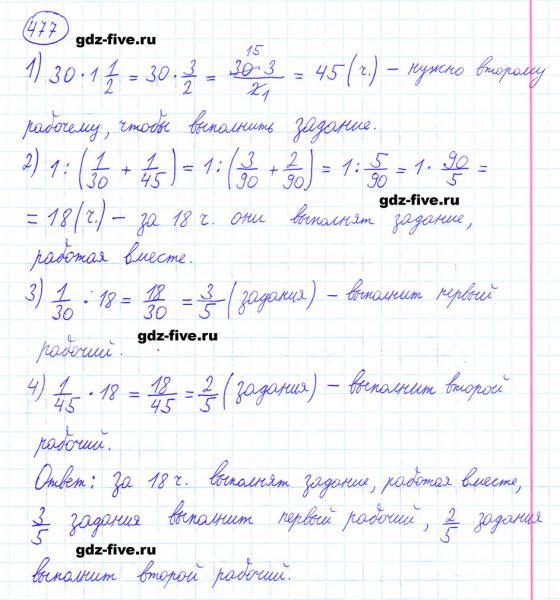 477
gdz-five.ru
1) 30 · 1 1/2 = 30 · 3/2 = 30 · 3 / 2 1 = 45 (ч.) – нужно второму
15
рабочему, чтобы выполнить задание.
2) 1 : (1/30 + 1/45) = 1 : (3/90 + 2/90) = 1 : 5/90 = 1 · 90/5 =
gdz-five.ru
= 18 (ч.) – за 18 ч. они выполнят задание,
работая вместе.
gdz-five.ru
3) 1/30 · 18 = 18/30 = 3/5 (задания) – выполнит первый
gdz-five.ru
рабочий.
4) 1/45 · 18 = 18/45 = 2/5 (задания) – выполнит второй
рабочий.
Ответ: за 18 ч. выполнят задание, работая вместе,
gdz-five.ru
3/5 задания выполнит первый рабочий, 2/5 задания
gdz-five.ru
выполнит второй рабочий.